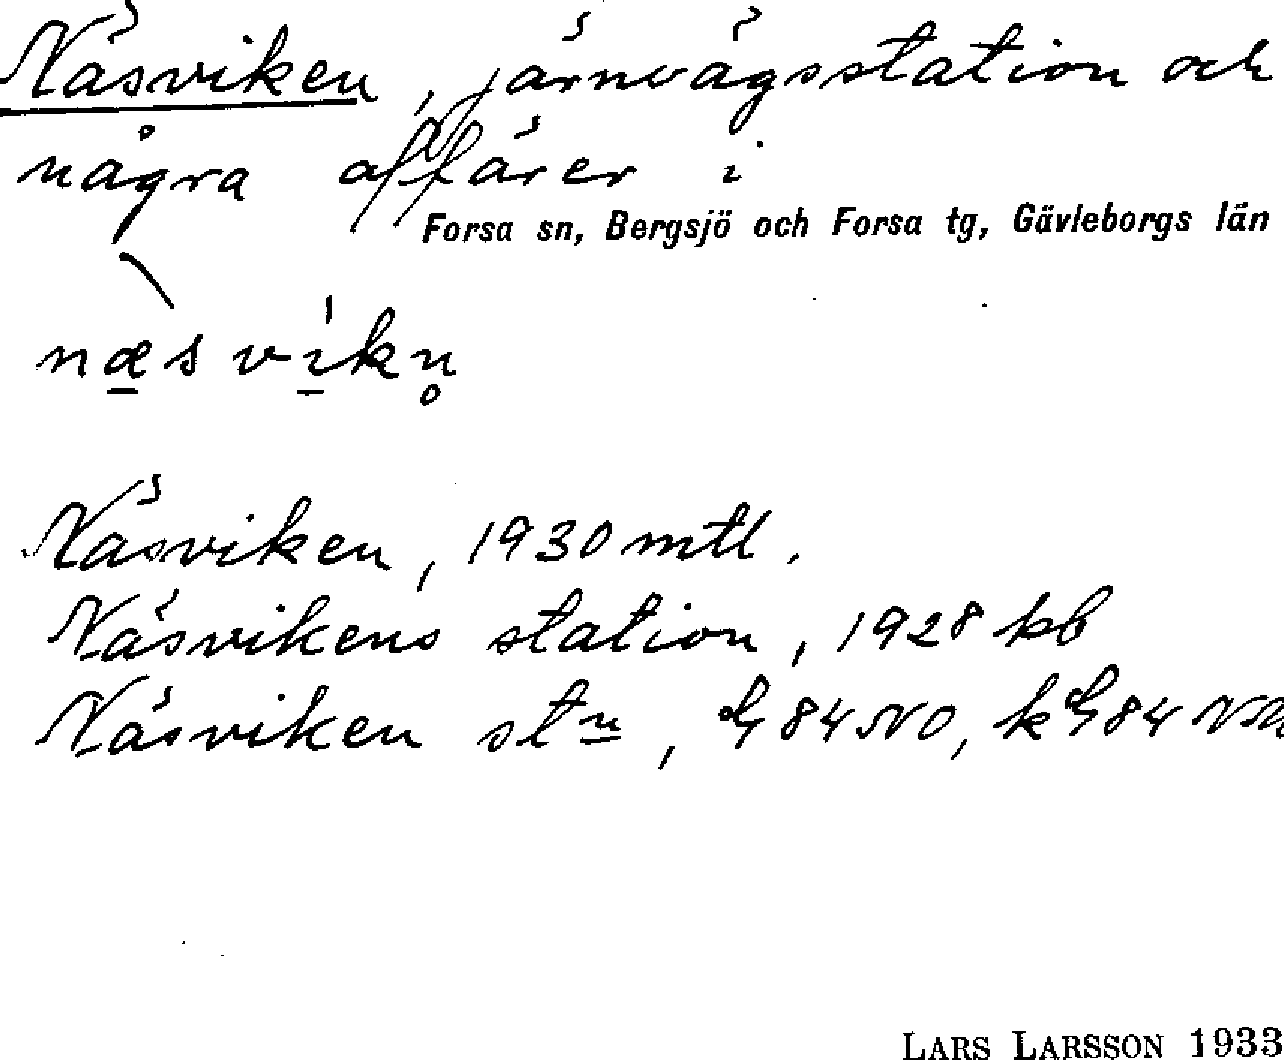 Näsviken, järnvägsstation och
några affärer i
Forsa sn, Bergsjö och Forsa tg, Gävleborgs län
næsvikn̥
Näsviken, 1930 mtl.
Näsvikens station, 1928 kb
Näsviken stn, 84 NO, 84
LARS LARSSON 1933